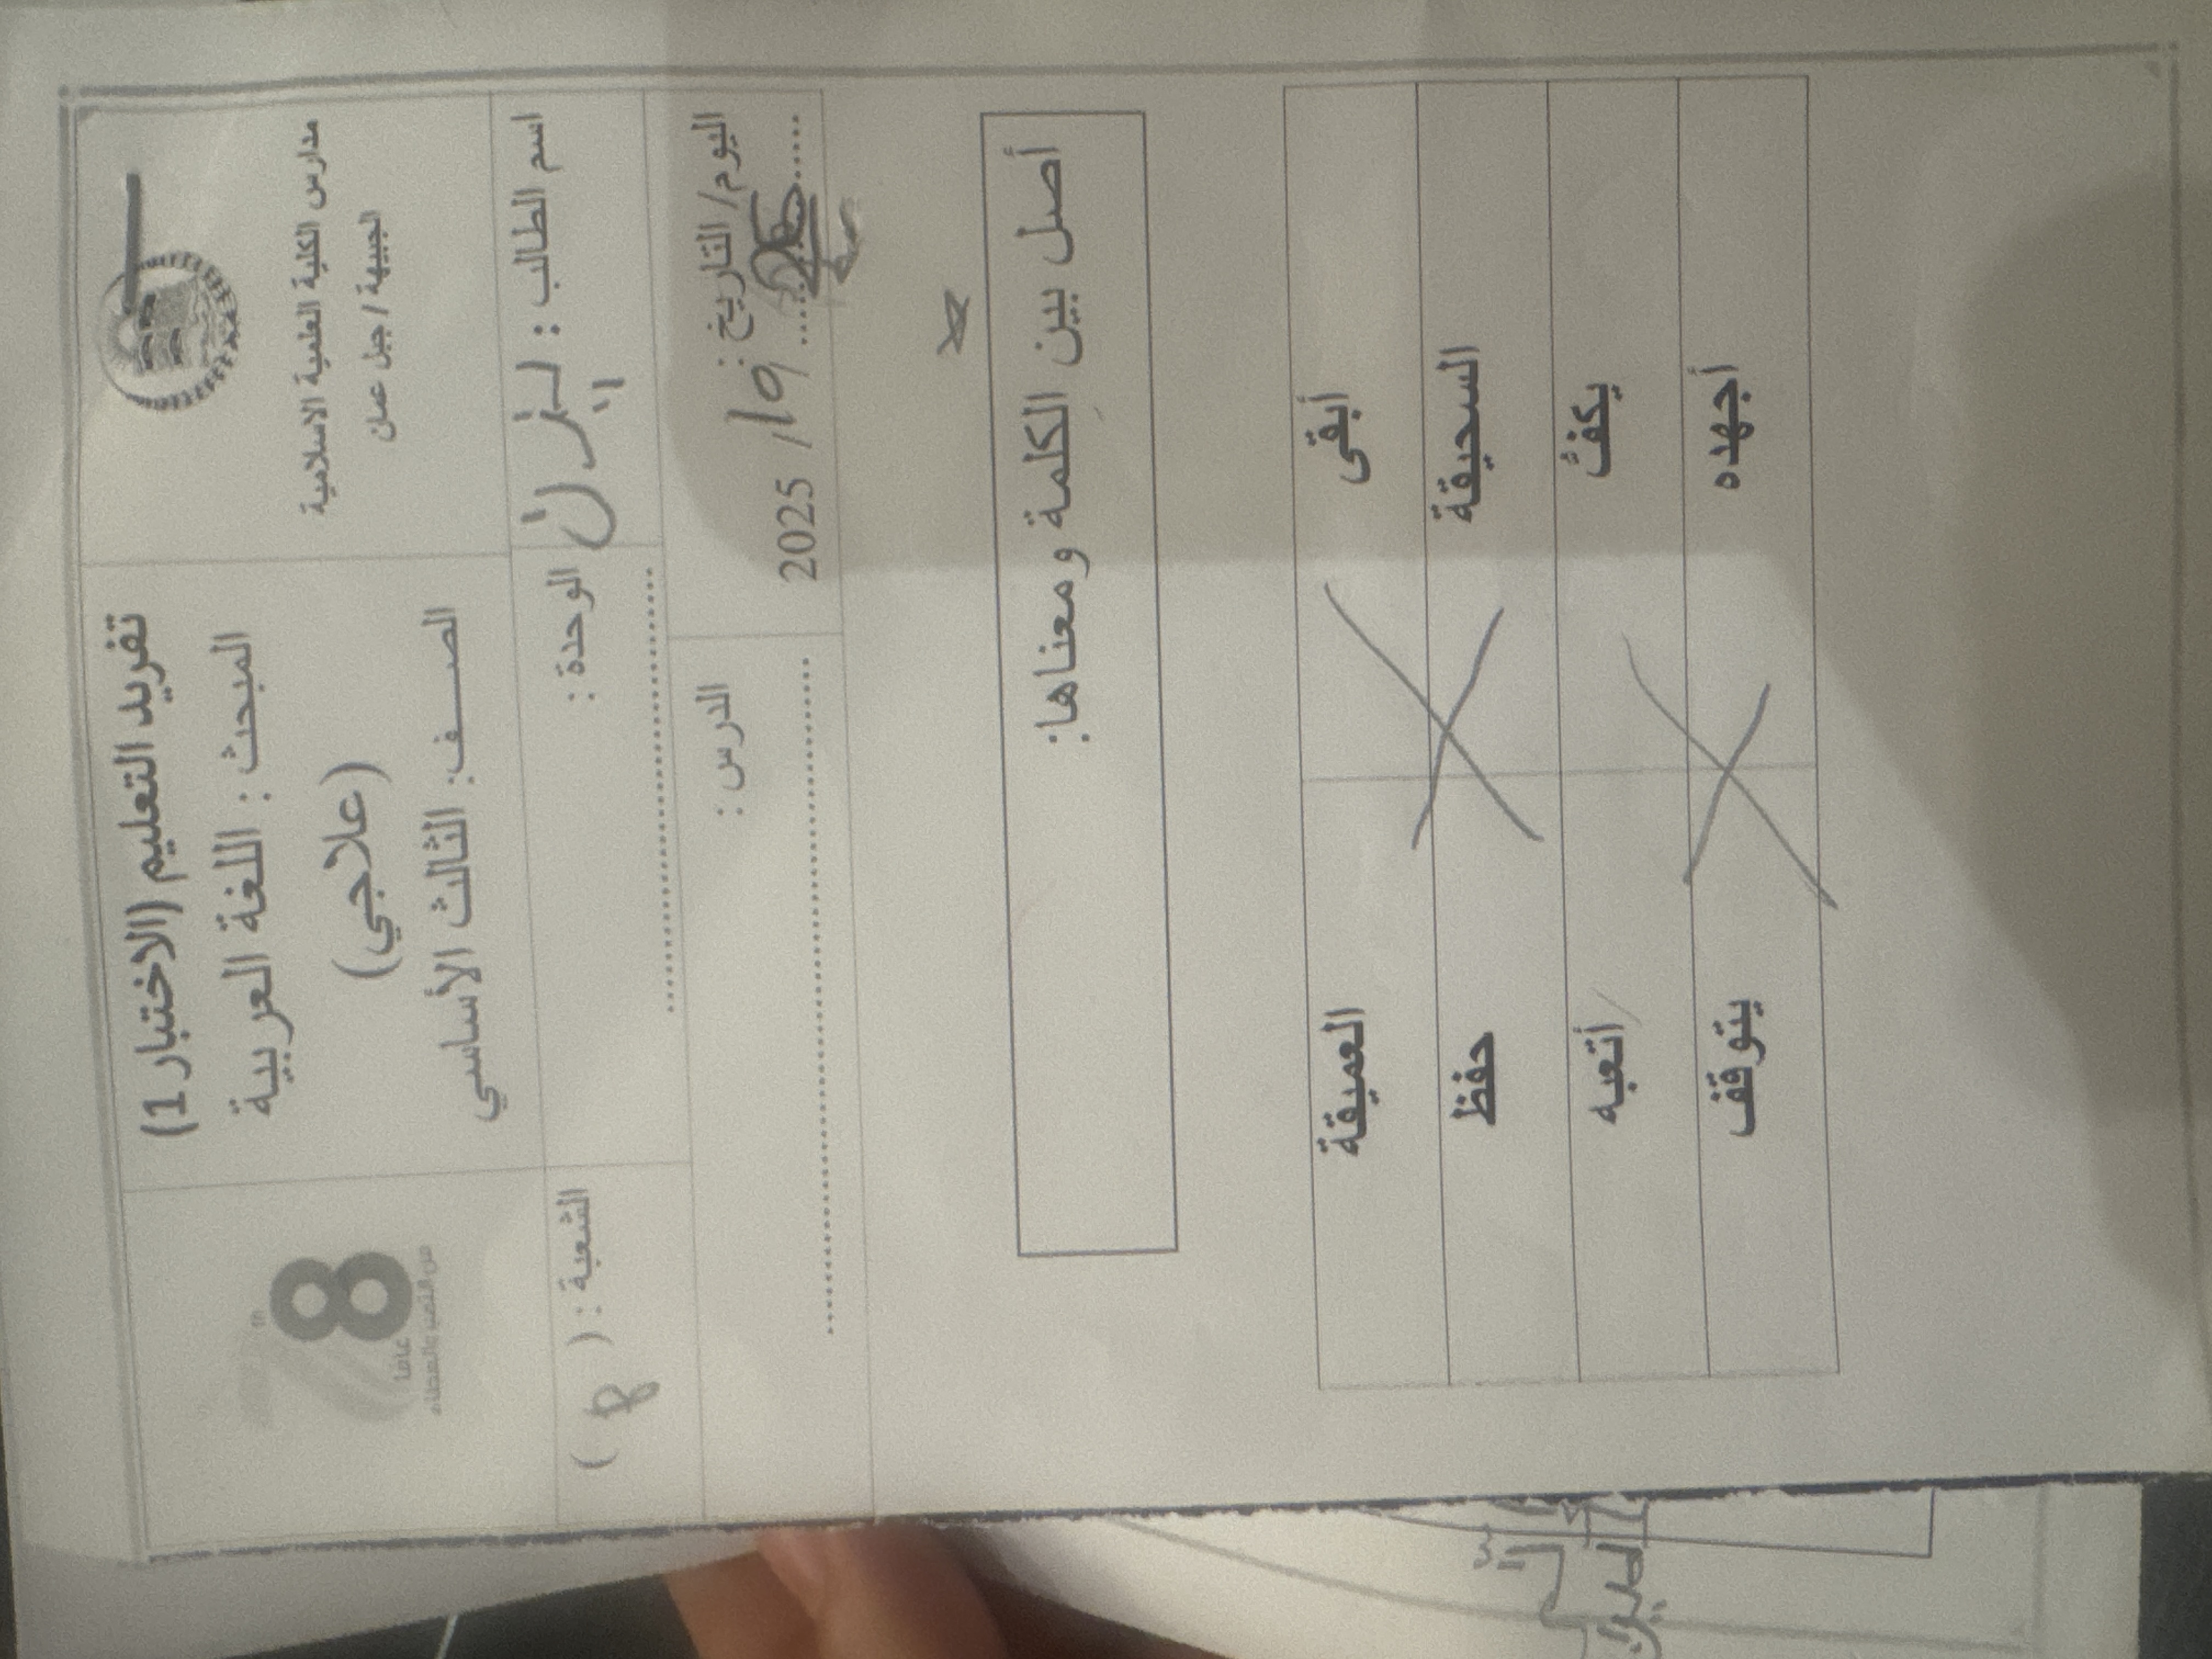 مدارس الكلية العلمية الاسلامية
لجبيهة / جبل عمان
تفريد التعليم (الاختبار 1)
المبحث : اللغة العربية
(علاجي)
الصـــف: الثالث الأساسي
8
عاما
اسم الطالب :
الوحدة : ........................
الشعبة : ( )
اليوم/ التاريخ :
2025 /10/
الدرس :
أصل بين الكلمة ومعناها:
أبقى العميقة
السحيقة حفظ
يكفُّ أتعبه
أجهده يتوقف